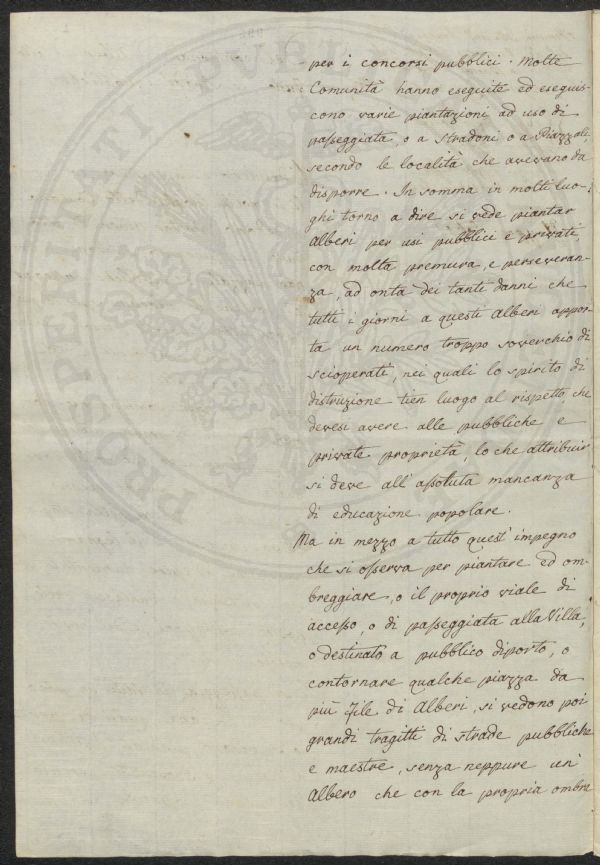 per i concorsi pubblici. Molte
Comunità hanno eseguite ed eseguis-
cono varie piantazioni ad uso di
passeggiata, o a stradoni o a Piazzali,
secondo le località che avevano da
disporre. In somma in molti luo-
ghi torno a dire si vede piantar
Alberi per usi pubblici e privati,
con molta premura, e perseveran-
za, ad onta dei tanti danni che
tutti i giorni a questi Alberi appor-
ta un numero troppo soverchio di
scioperati, nei quali lo spirito di
distruzione tien luogo al rispetto, che
devesi avere alle pubbliche e
private proprietà, lo che attribuir
si deve all'assoluta mancanza
di educazione popolare.
Ma in mezzo a tutto quest'impegno
che si osserva per piantare ed om-
breggiare, o il proprio viale di
accesso, o di passeggiata alla Villa,
o destinato a pubblico diporto, o
contornare qualche piazza da
più file di Alberi, si vedono poi
grandi tragitti di strade pubbliche
e maestre, senza neppure un
Albero che con la propria ombra
PROSPERITATI PVBL